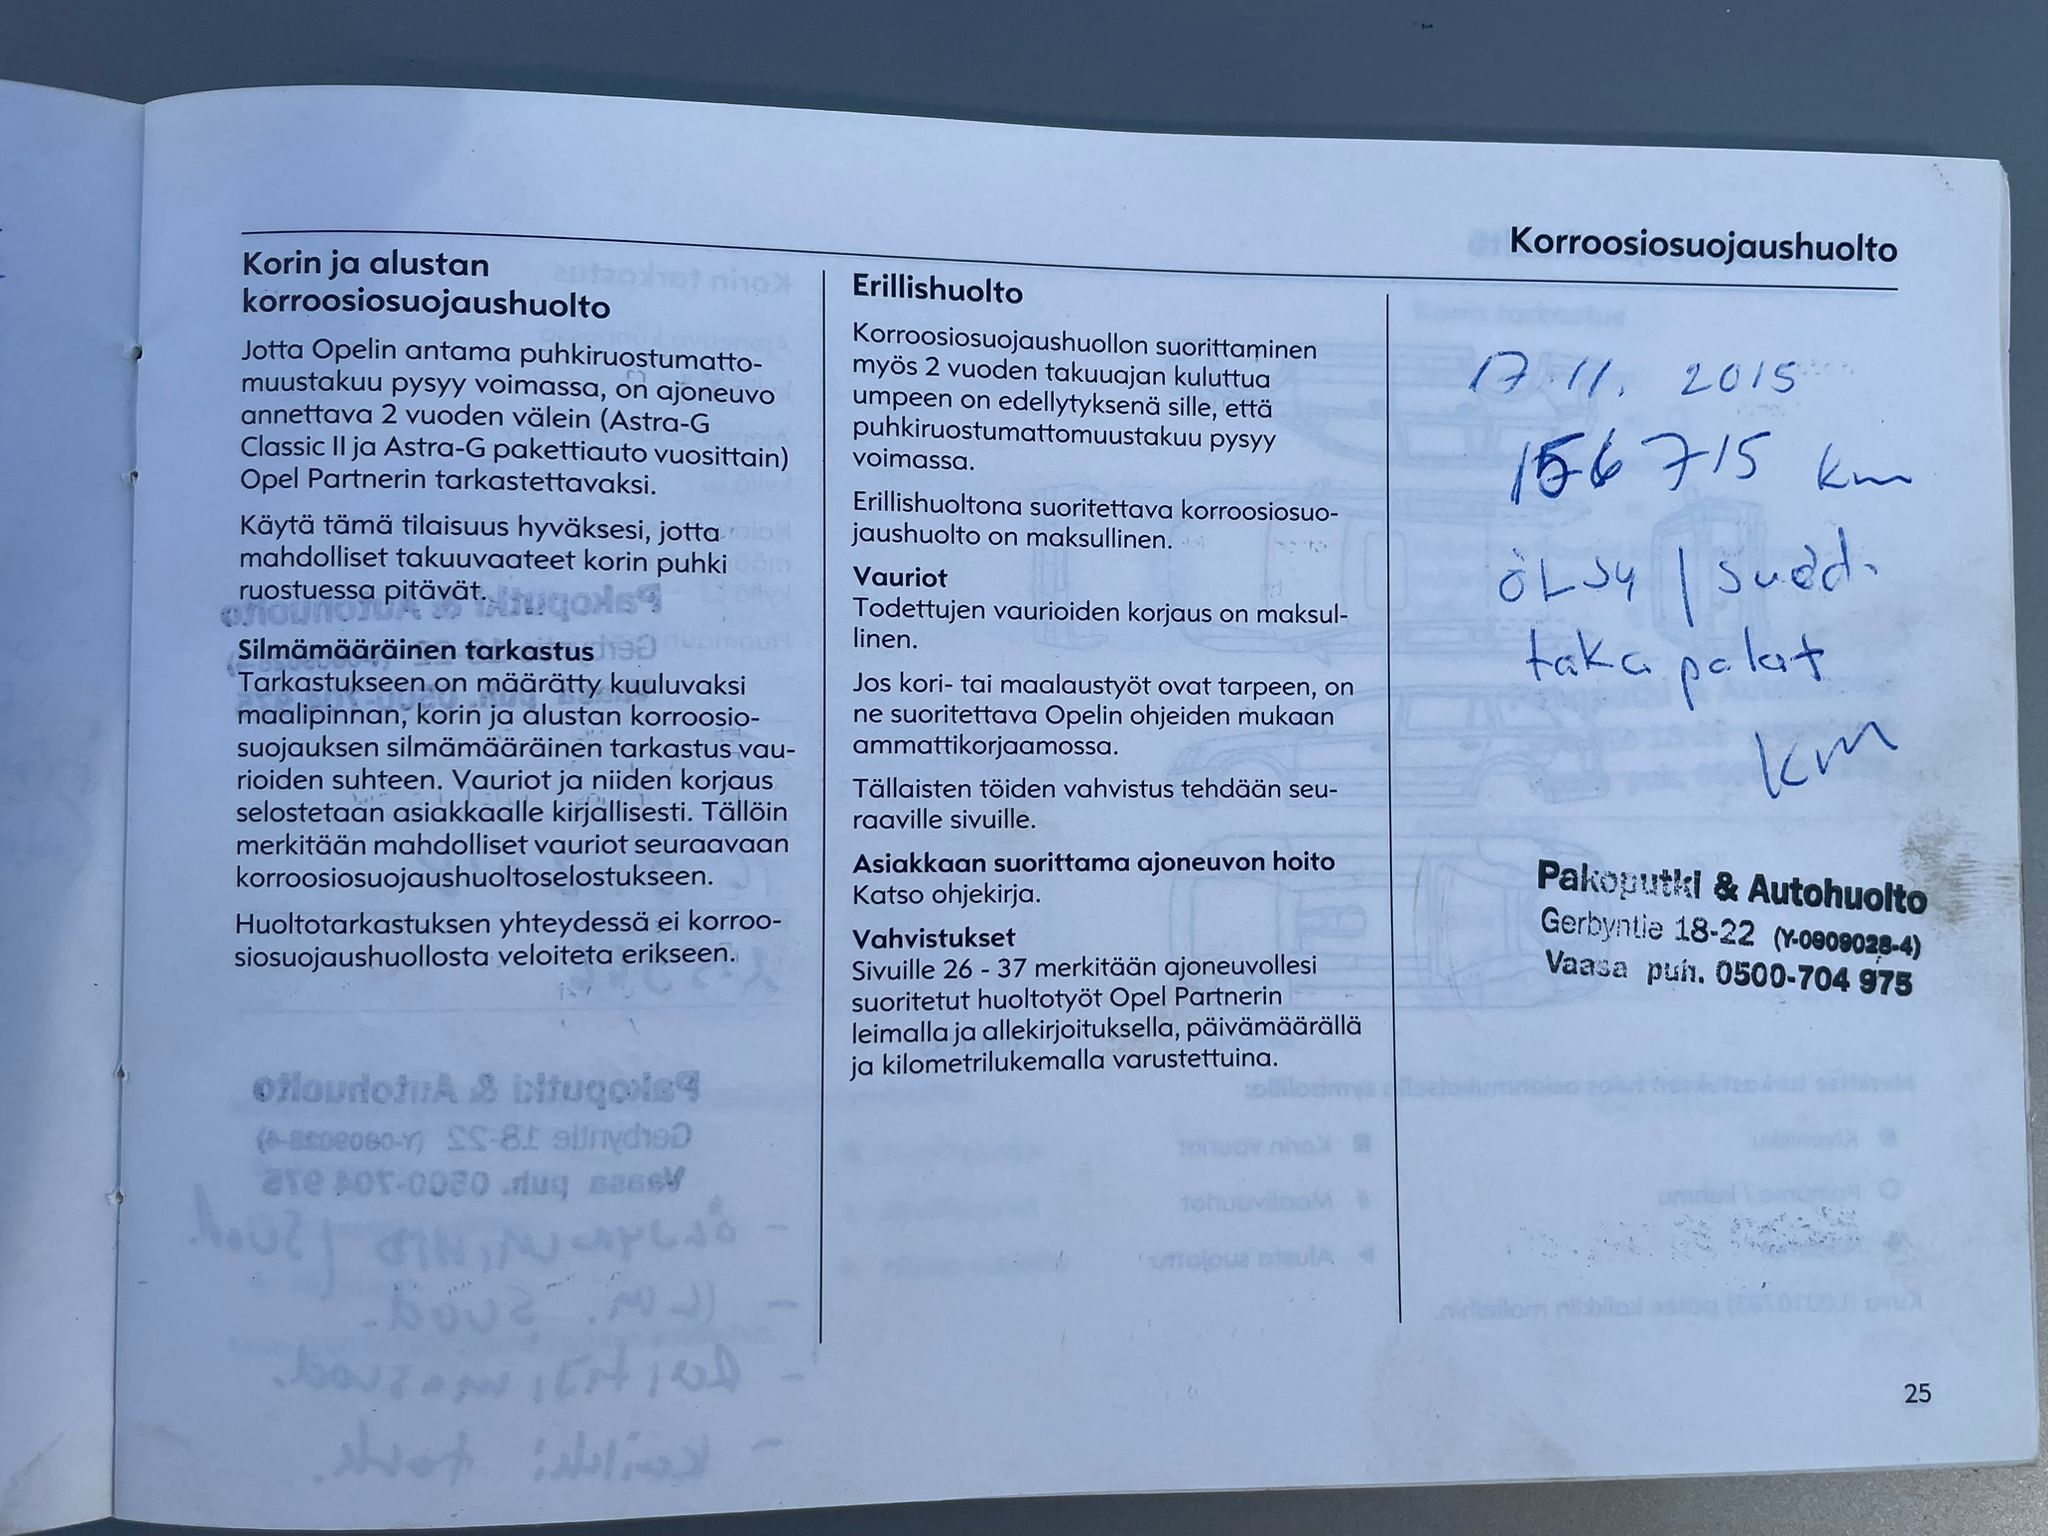 Korroosiosuojaushuolto
Korin ja alustan
korroosiosuojaushuolto
Jotta Opelin antama puhkiruostumatto-
muustakuu pysyy voimassa, on ajoneuvo
annettava 2 vuoden välein (Astra-G
Classic II ja Astra-G pakettiauto vuosittain)
Opel Partnerin tarkastettavaksi.
Käytä tämä tilaisuus hyväksesi, jotta
mahdolliset takuuvaateet korin puhki
ruostuessa pitävät.
Silmämääräinen tarkastus
Tarkastukseen on määrätty kuuluvaksi
maalipinnan, korin ja alustan korroosio-
suojauksen silmämääräinen tarkastus vau-
rioiden suhteen. Vauriot ja niiden korjaus
selostetaan asiakkaalle kirjallisesti. Tällöin
merkitään mahdolliset vauriot seuraavaan
korroosiosuojaushuoltoselostukseen.
Huoltotarkastuksen yhteydessä ei korroo-
siosuojaushuollosta veloiteta erikseen.
Erillishuolto
Korroosiosuojaushuollon suorittaminen
myös 2 vuoden takuuajan kuluttua
umpeen on edellytyksenä sille, että
puhkiruostumattomuustakuu pysyy
voimassa.
Erillishuoltona suoritettava korroosiosuo-
jaushuolto on maksullinen.
Vauriot
Todettujen vaurioiden korjaus on maksul-
linen.
Jos kori- tai maalaustyöt ovat tarpeen, on
ne suoritettava Opelin ohjeiden mukaan
ammattikorjaamossa.
Tällaisten töiden vahvistus tehdään seu-
raaville sivuille.
Asiakkaan suorittama ajoneuvon hoito
Katso ohjekirja.
Vahvistukset
Sivuille 26 - 37 merkitään ajoneuvollesi
suoritetut huoltotyöt Opel Partnerin
leimalla ja allekirjoituksella, päivämäärällä
ja kilometrilukemalla varustettuina.
17.11. 2015
156 715 km
öLJy / suod.
taka palat
km
Pakoputki & Autohuolto
Gerbyntie 18-22 (Y-0909028-4)
Vaasa puh. 0500-704 975
25